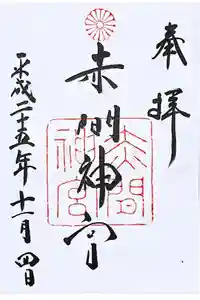 奉拝
赤間神宮
赤間
神宮
平成二十五年十一月四日